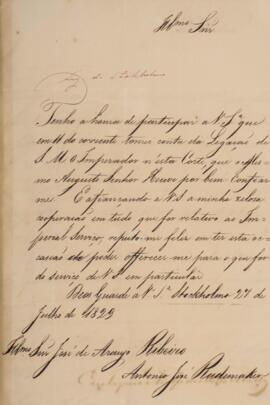 Illmo Snr
de Stockholmo
Tenho a honra de participar a V. Sª que
em 11 do corrente tomei conta da Legação de
S M o Imperador n'esta Corte, que o Mes-
mo Augusto Senhor Houve por bem Confiar
me. E afiançando a V S a minha zelosa
cooperação em tudo que for relativo ao Im-
perial Serviço, reputo-me feliz em ter esta oc-
casião de poder offerecer me para o que for
do serviço de V S em particular
Deos Guarde a V Sª Stockholmo 27 de
Julho de 1829
Illmo Snr José de Araujo Ribeiro
Antonio José Rademaker